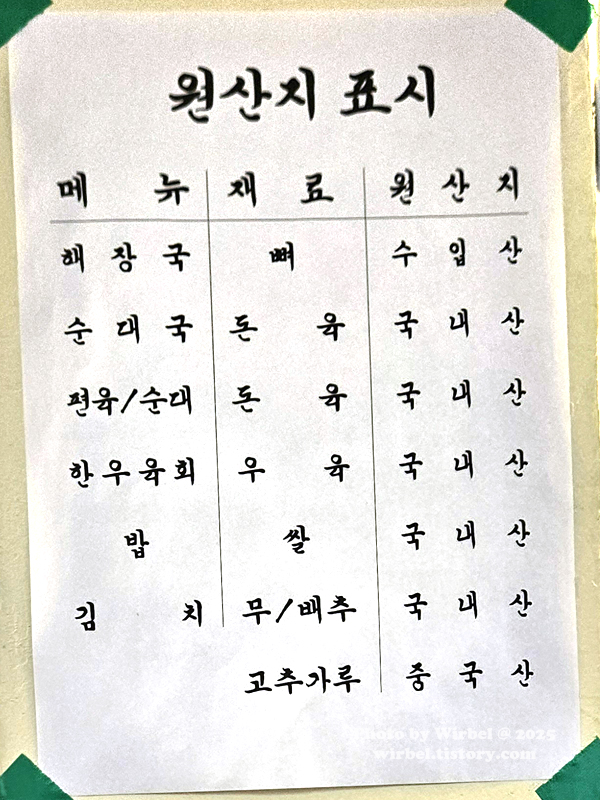 원산지 표시
메 뉴 재 료 원 산 지
해 장 국 뼈 수 입 산
순 대 국 돈 육 국 내 산
편육/순대 돈 육 국 내 산
한우육회 우 육 국 내 산
밥 쌀 국 내 산
김 치 무/배추 국 내 산
고추가루 중 국 산
Photo by Wirbel @ 2025
wirbel.tistory.com